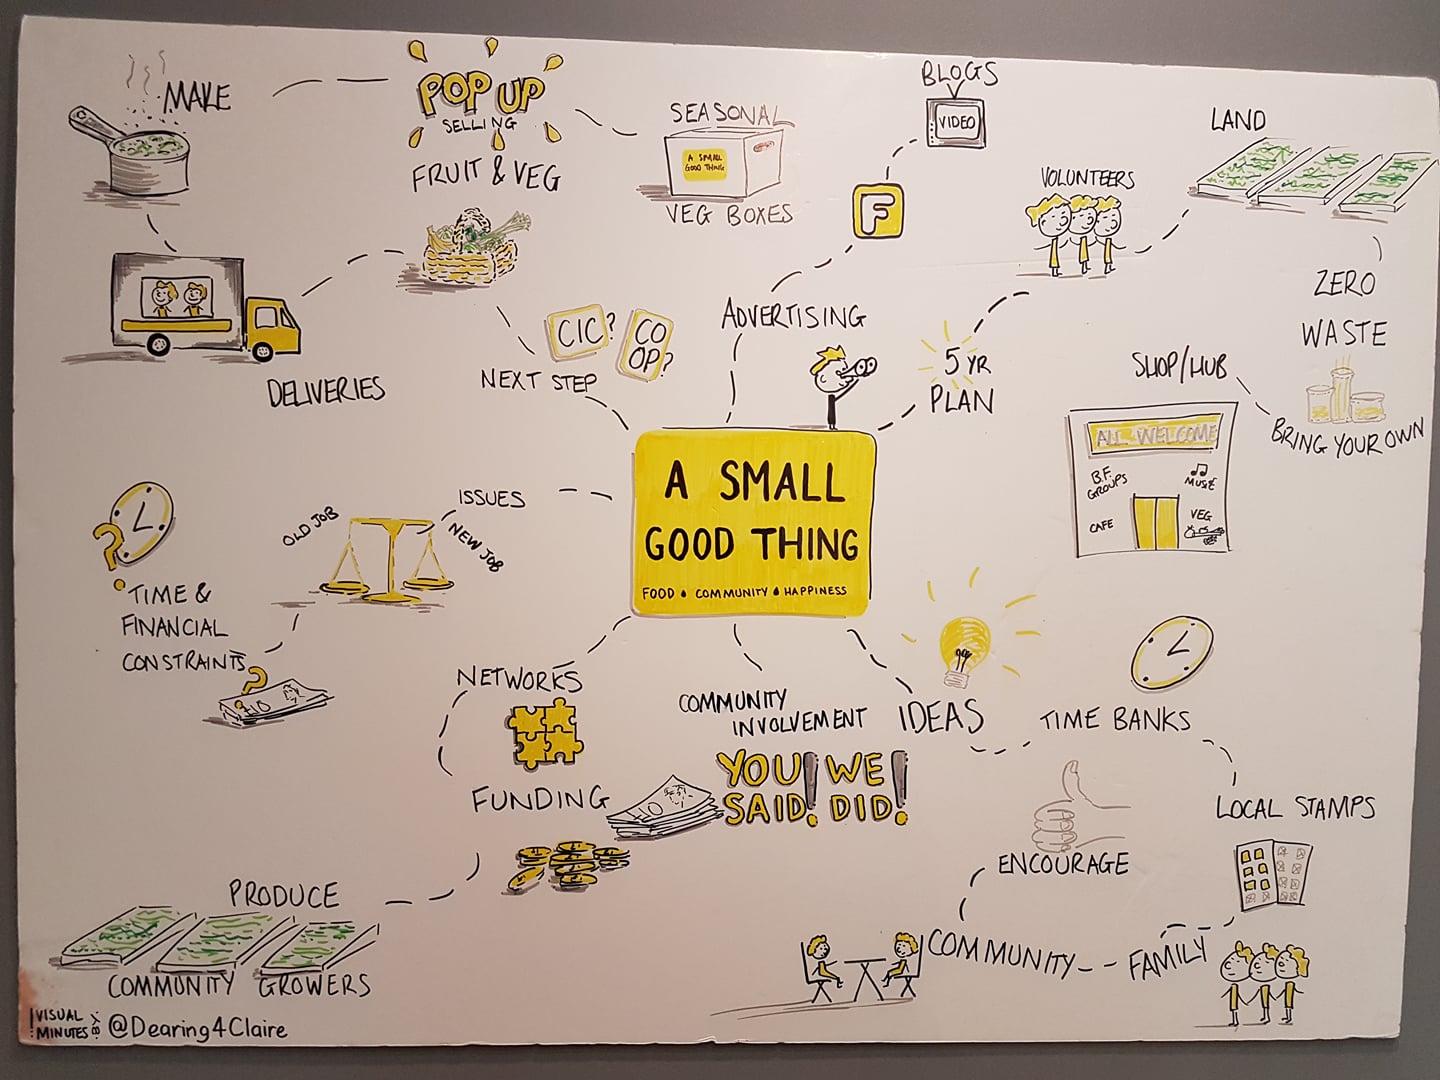 MAKE
POP UP
SELLING
FRUIT & VEG
SEASONAL
A SMALL
GOOD THING
VEG BOXES
BLOGS
VIDEO
F
ADVERTISING
VOLUNTEERS
LAND
ZERO
WASTE
BRING YOUR OWN
SHOP/HUB
ALL WELCOME
B.F.
GROUPS
MUSIC
CAFE
VEG
5 YR
PLAN
DELIVERIES
CIC?
CO
OP?
NEXT STEP
A SMALL
GOOD THING
FOOD • COMMUNITY • HAPPINESS
ISSUES
OLD JOB
NEW JOB
?
TIME &
FINANCIAL
CONSTRAINTS
?
10
NETWORKS
FUNDING
10
COMMUNITY
INVOLVEMENT
YOU! WE!
SAID! DID!
IDEAS
TIME BANKS
LOCAL STAMPS
ENCOURAGE
COMMUNITY
FAMILY
PRODUCE
COMMUNITY GROWERS
VISUAL
MINUTES BY @Dearing4Claire